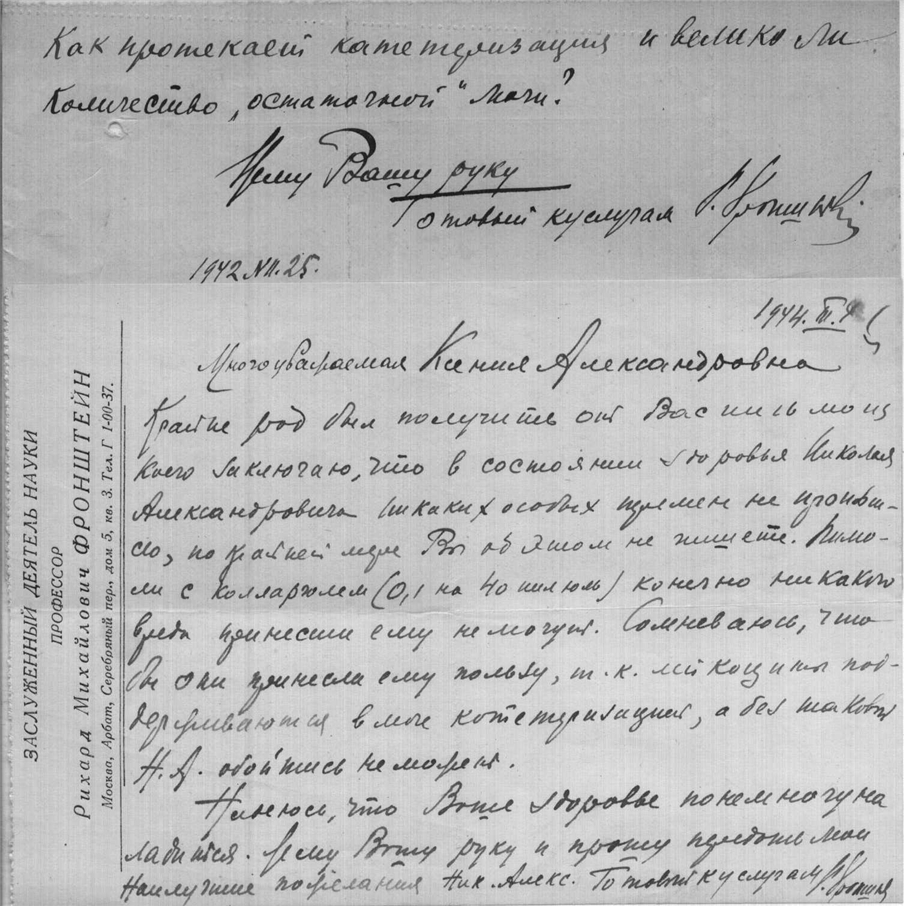 Как протекает катетеризация и велико ли
количество „остаточной" мочи?
Жму Вашу руку
Готовый к услугам Р. Фронштейн
1942 XII. 25.
1944. III.
Многоуважаемая Ксения Александровна
Крайне рад был получить от Вас письмо из
коего заключаю, что в состоянии здоровья Николая
Александровича никаких особых перемен не произош-
ло, по крайней мере Вы об этом не пишете. Пилю-
ли с колларголем (0,1 на 40 пилюль) конечно никакого
вреда принести ему не могут. Сомневаюсь, что
бы они принесли ему пользу, т. к. лейкоциты под-
держиваются в моче катетеризацией, а без таковой
Н. А. обойтись не может.
Надеюсь, что Ваше здоровье понемногу на
ладится. Жму Вашу руку и прошу передать мои
наилучшие пожелания Ник. Алекс. Готовый к услугам Р. Фронштейн
ЗАСЛУЖЕННЫЙ ДЕЯТЕЛЬ НАУКИ
ПРОФЕССОР
Рихард Михайлович ФРОНШТЕЙН
Москва, Арбат, Серебряный пер., дом 5, кв. 3. Тел. Г 1-00-37.